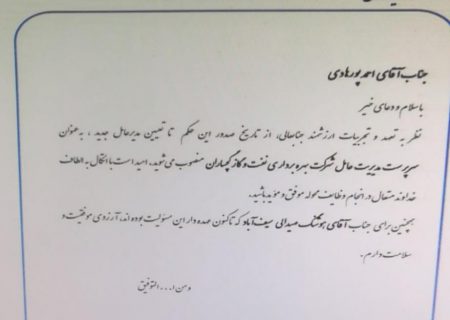 جناب آقای احمد پورهادی
با سلام و دعای خیر
نظر به تعهد و تجربیات ارزشمند جنابعالی، از تاریخ صدور این حکم تا تعیین مدیرعامل جدید، به‌عنوان
سرپرست مدیریت عامل شرکت بهره برداری نفت و گاز گچساران منصوب می‌شوید. امید است با اتکال به الطاف
خداوند متعال در انجام وظایف محوله موفق و مؤید باشید.
همچنین برای جناب آقای هوشنگ صیدالی سیف‌آباد که تاکنون عهده‌دار این مسئولیت بوده‌اند، آرزوی موفقیت و
سلامت دارم.
و من ا... التوفیق